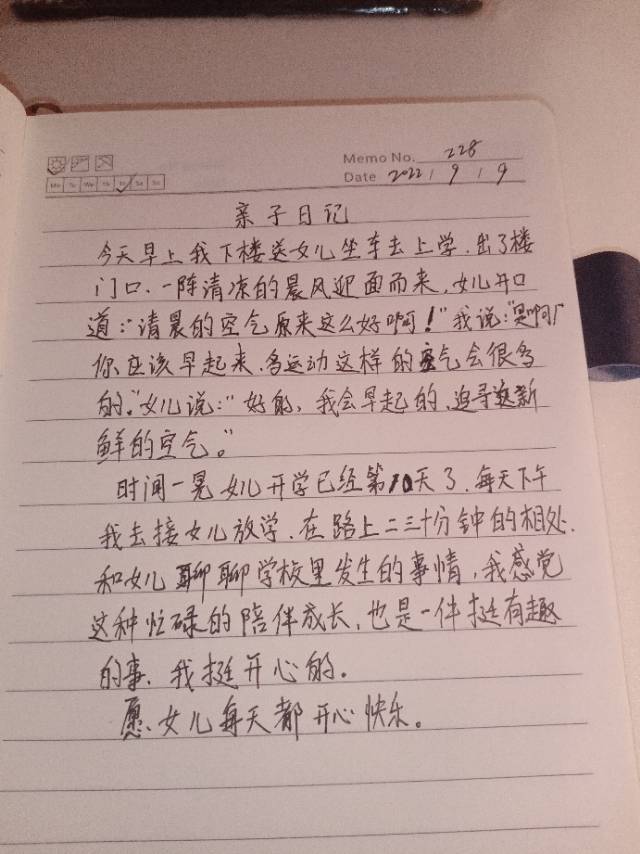 Memo No. 228
Mo Tu We Th Fr Sa Su Date 2022 / 9 / 9
亲子日记
今天早上我下楼送女儿坐车去上学.出了楼
门口.一阵清凉的晨风迎面而来,女儿开口
道:"清晨的空气原来这么好啊!"我说:"是啊!
你应该早起来.多运动这样的空气会很多
的."女儿说:"好的,我会早起的,追寻这新
鲜的空气。"
时间一晃女儿开学已经第10天了.每天下午
我去接女儿放学.在路上二三十分钟的相处.
和女儿聊聊学校里发生的事情,我感觉
这种忙碌的陪伴成长,也是一件挺有趣
的事.我挺开心的.
愿女儿每天都开心快乐。